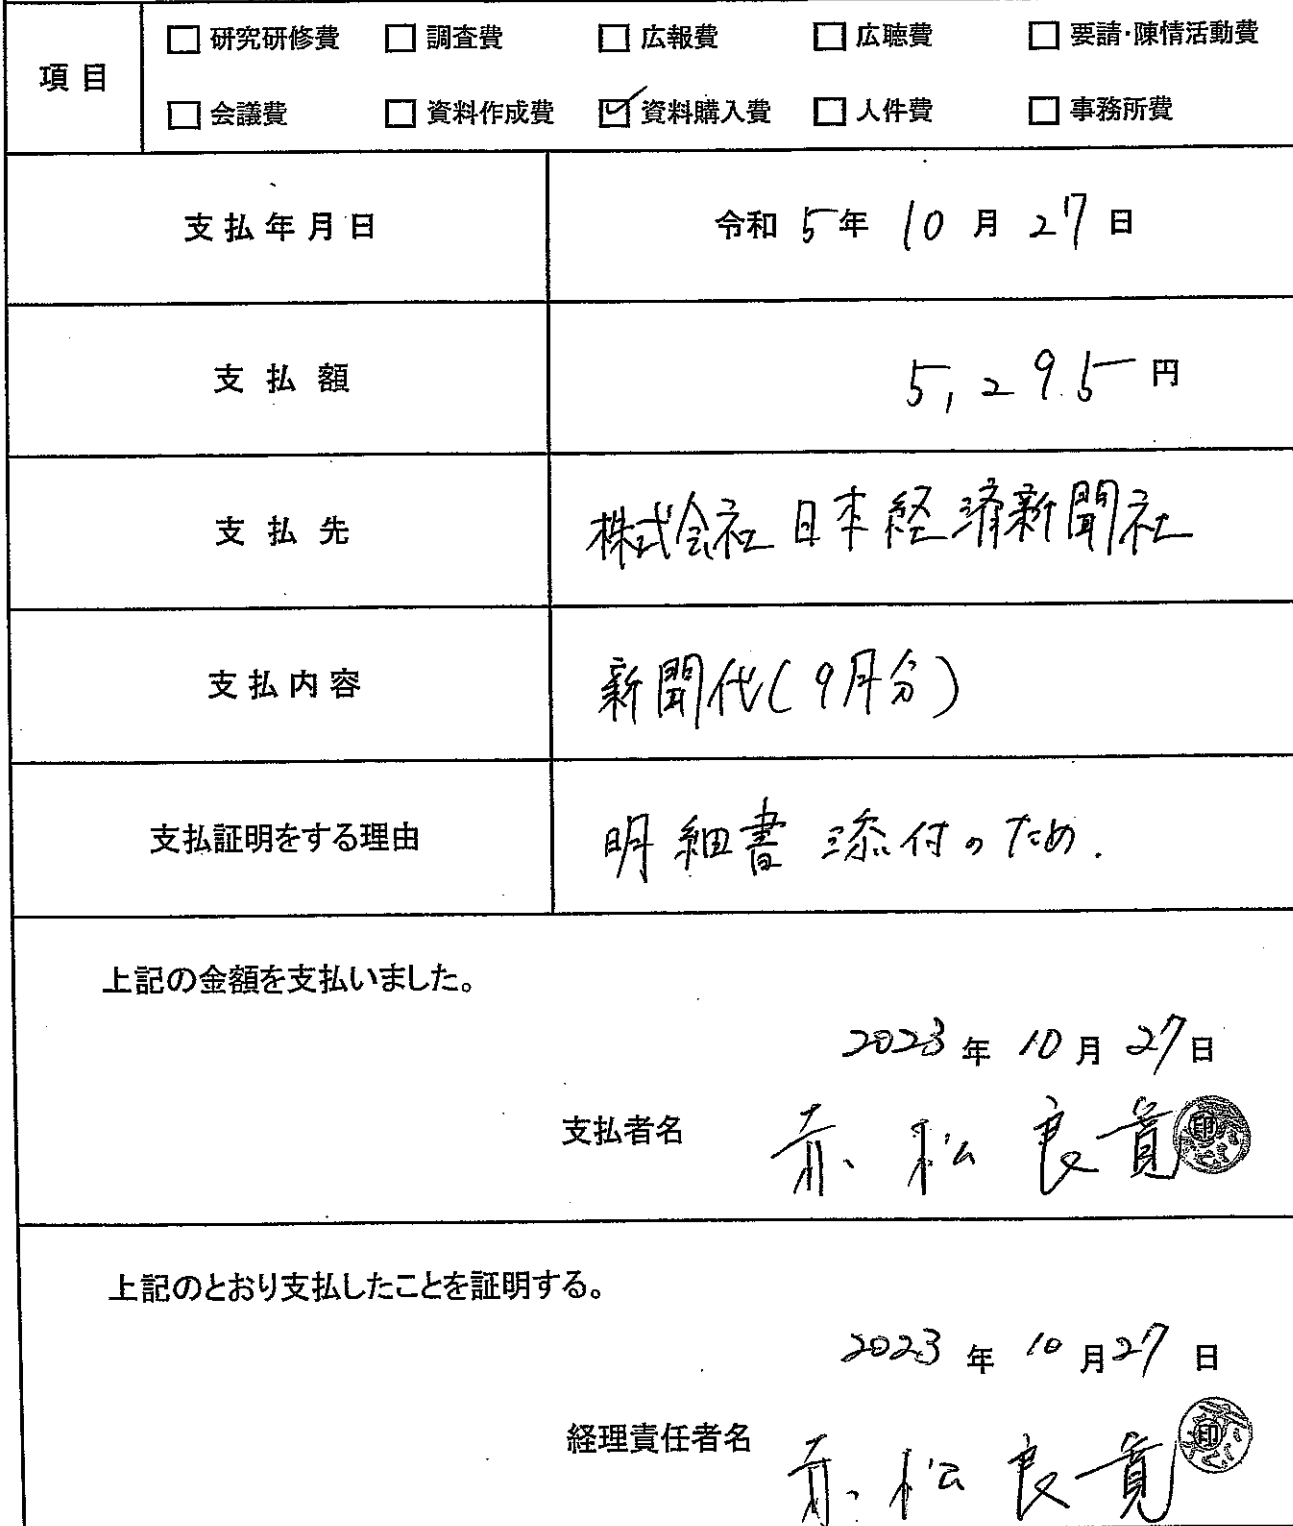 □ 研究研修費 □ 調査費 □ 広報費 □ 広聴費 □ 要請・陳情活動費
項目
□ 会議費 □ 資料作成費 ☑ 資料購入費 □ 人件費 □ 事務所費
支払年月日 令和 5年 10月 27日
支払額 5,295円
支払先 株式会社日本経済新聞社
支払内容 新聞代(9月分)
支払証明をする理由 明細書添付のため.
上記の金額を支払いました。
2023年 10月 27日
支払者名 赤松良寛 印
上記のとおり支払したことを証明する。
2023年 10月 27日
経理責任者名 赤松良寛 印